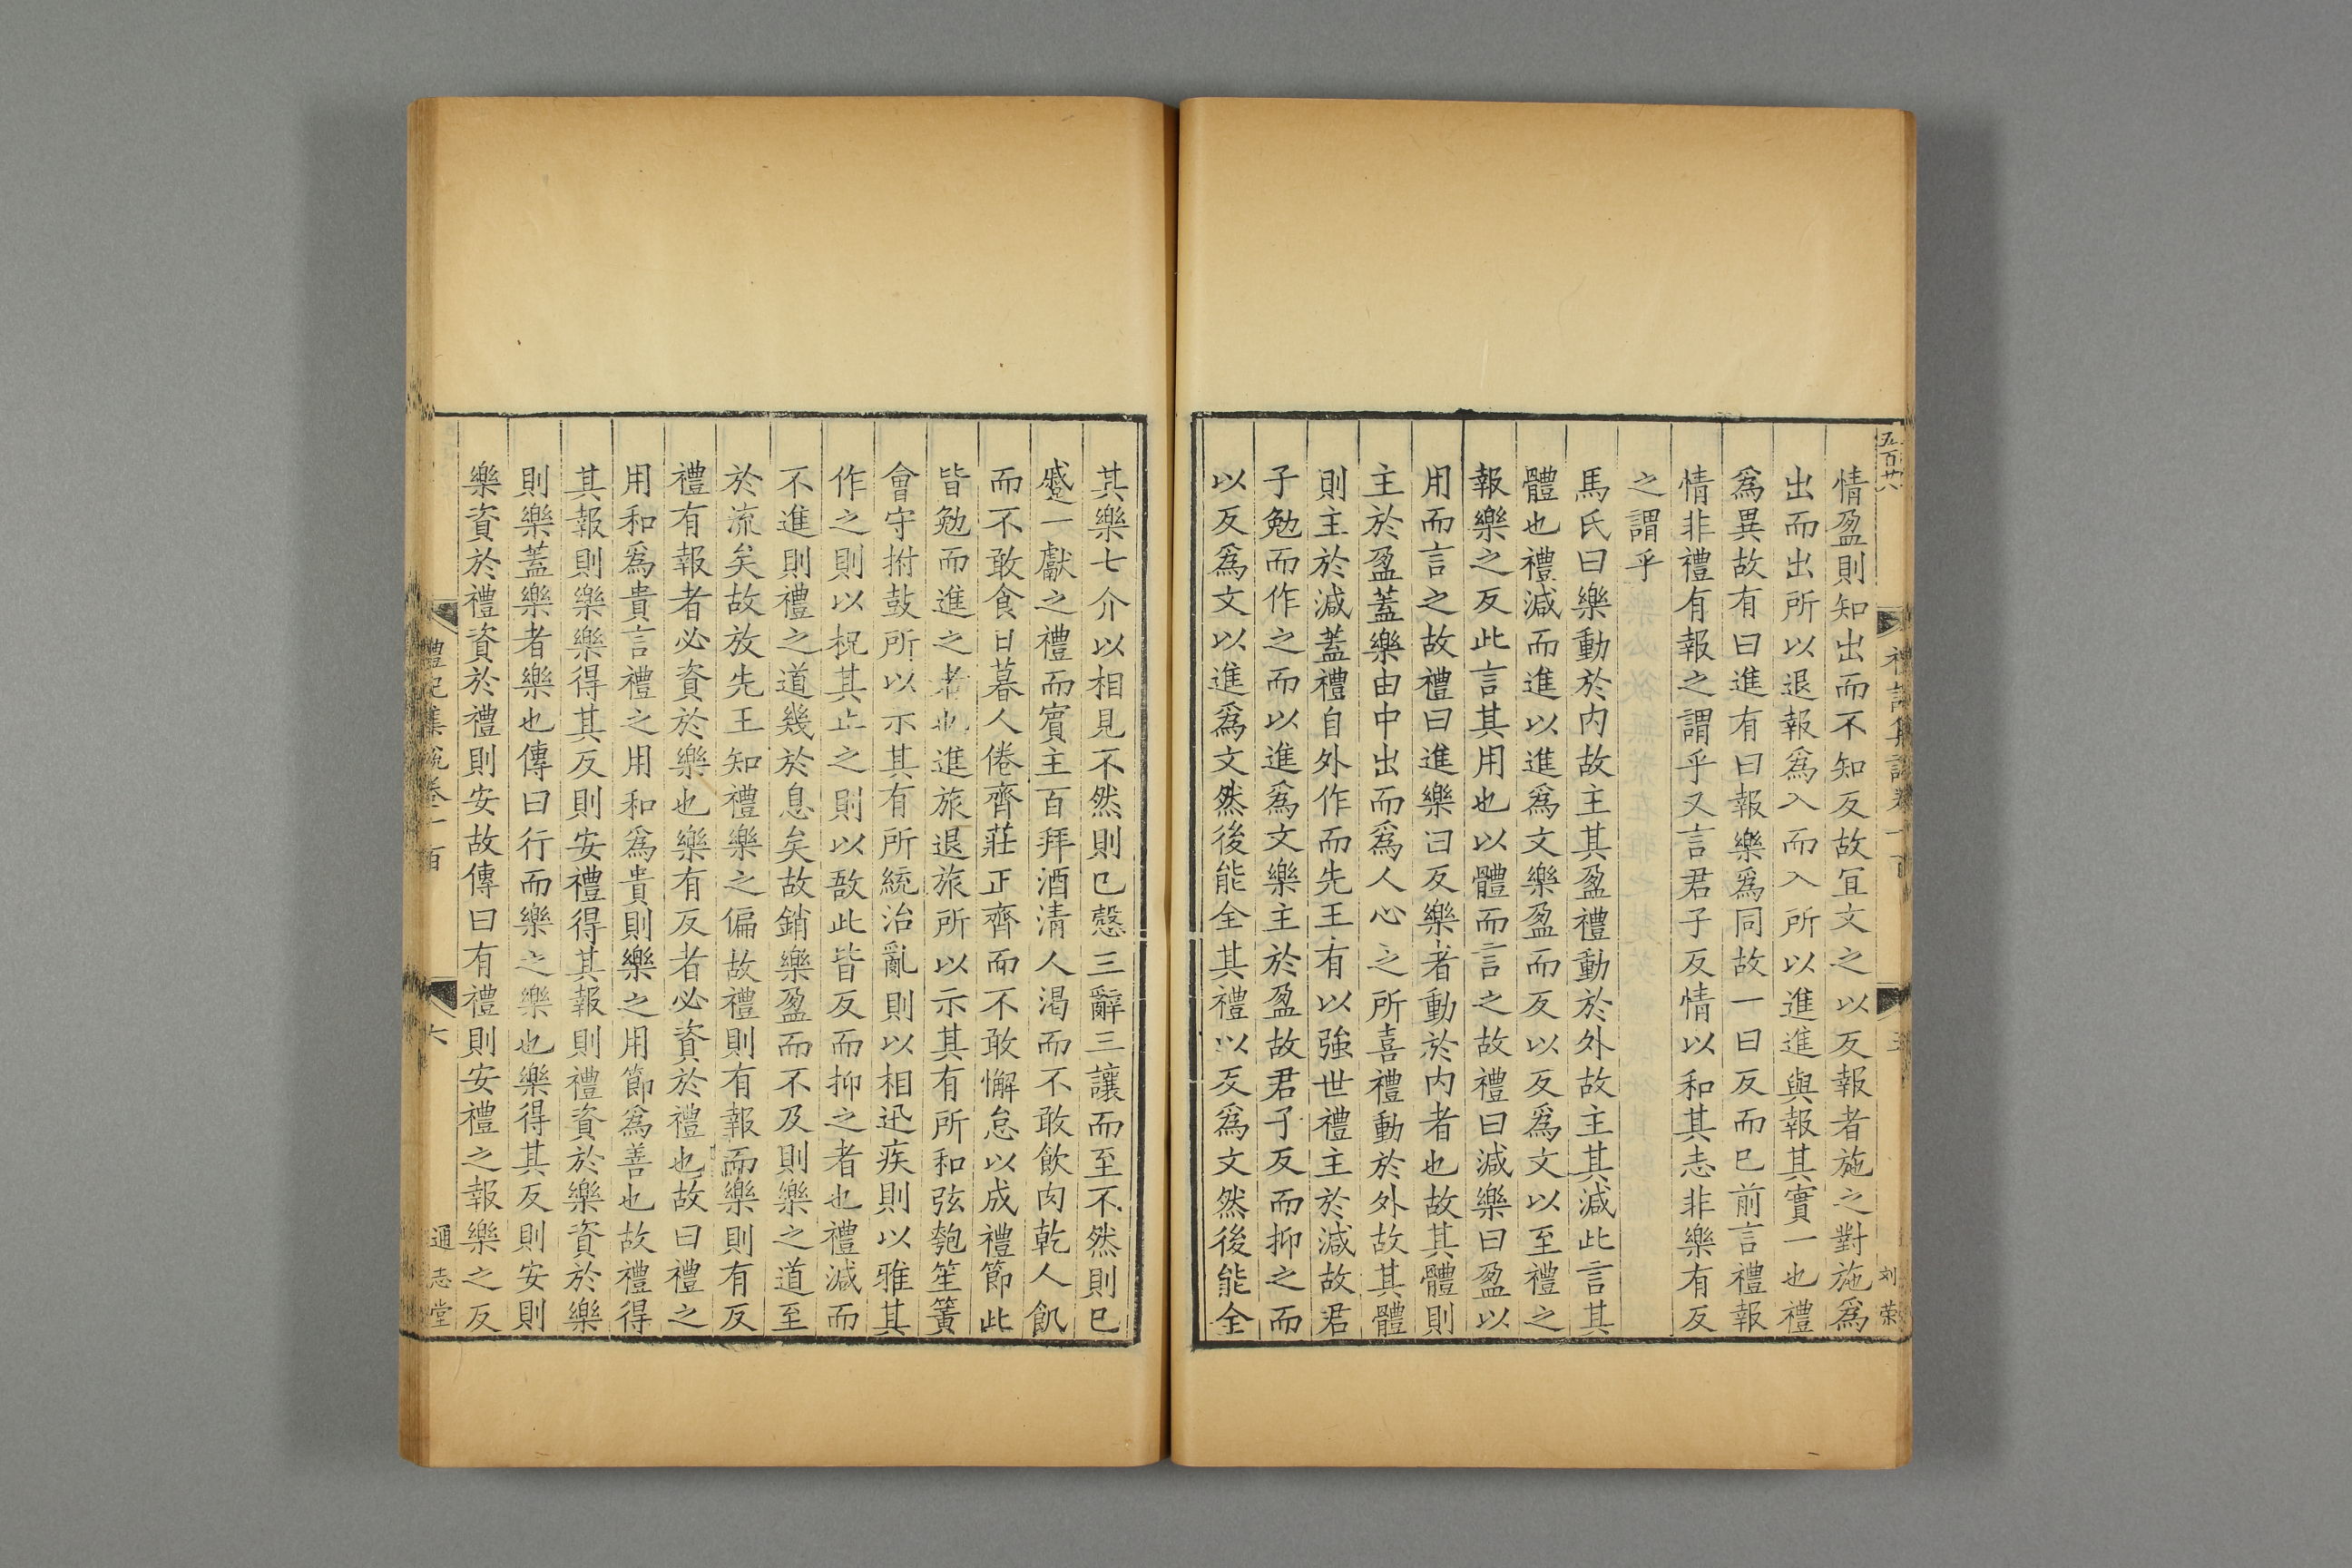 五百廿八
情盈則知出而不知反故冝文之以反報者施之對施爲
出而出所以退報爲入而入所以進進與報其實一也禮
爲異故有曰進有曰報樂爲同故一曰反而已前言禮報
情非禮有報之謂乎又言君子反情以和其志非樂有反
之謂乎
馬氏曰樂動於内故主其盈禮動於外故主其減此言其
體也禮減而進以進爲文樂盈而反以反爲文以至禮之
報樂之反此言其用也以體而言之故禮曰減樂曰盈以
用而言之故禮曰進樂曰反樂者動於内者也故其體則
主於盈蓋樂由中出而爲人心之所喜禮動於外故其體
則主於減蓋禮自外作而先王有以強世禮主於減故君
子勉而作之而以進爲文樂主於盈故君子反而抑之而
以反爲文以進爲文然後能全其禮以反爲文然後能全
其樂七介以相見不然則已慤三辭三讓而至不然則已
蹙一獻之禮而賓主百拜酒清人渴而不敢飲肉乾人飢
而不敢食日暮人倦齊莊正齊而不敢懈怠以成禮節此
皆勉而進之者也進旅退旅所以示其有所和弦匏笙簧
會守拊鼓所以示其有所統治亂則以相迅疾則以雅其
作之則以柷其止之則以敔此皆反而抑之者也禮減而
不進則禮之道幾於息矣故銷樂盈而不及則樂之道至
於流矣故放先王知禮樂之偏故禮則有報而樂則有反
禮有報者必資於樂也樂有反者必資於禮也故曰禮之
用和爲貴言禮之用和爲貴則樂之用節爲善也故禮得
其報則樂樂得其反則安禮得其報則禮資於樂資於樂
則樂蓋樂者樂也傳曰行而樂之樂也樂得其反則安則
樂資於禮資於禮則安故傳曰有禮則安禮之報樂之反
禮記集說卷一百
六
通志堂